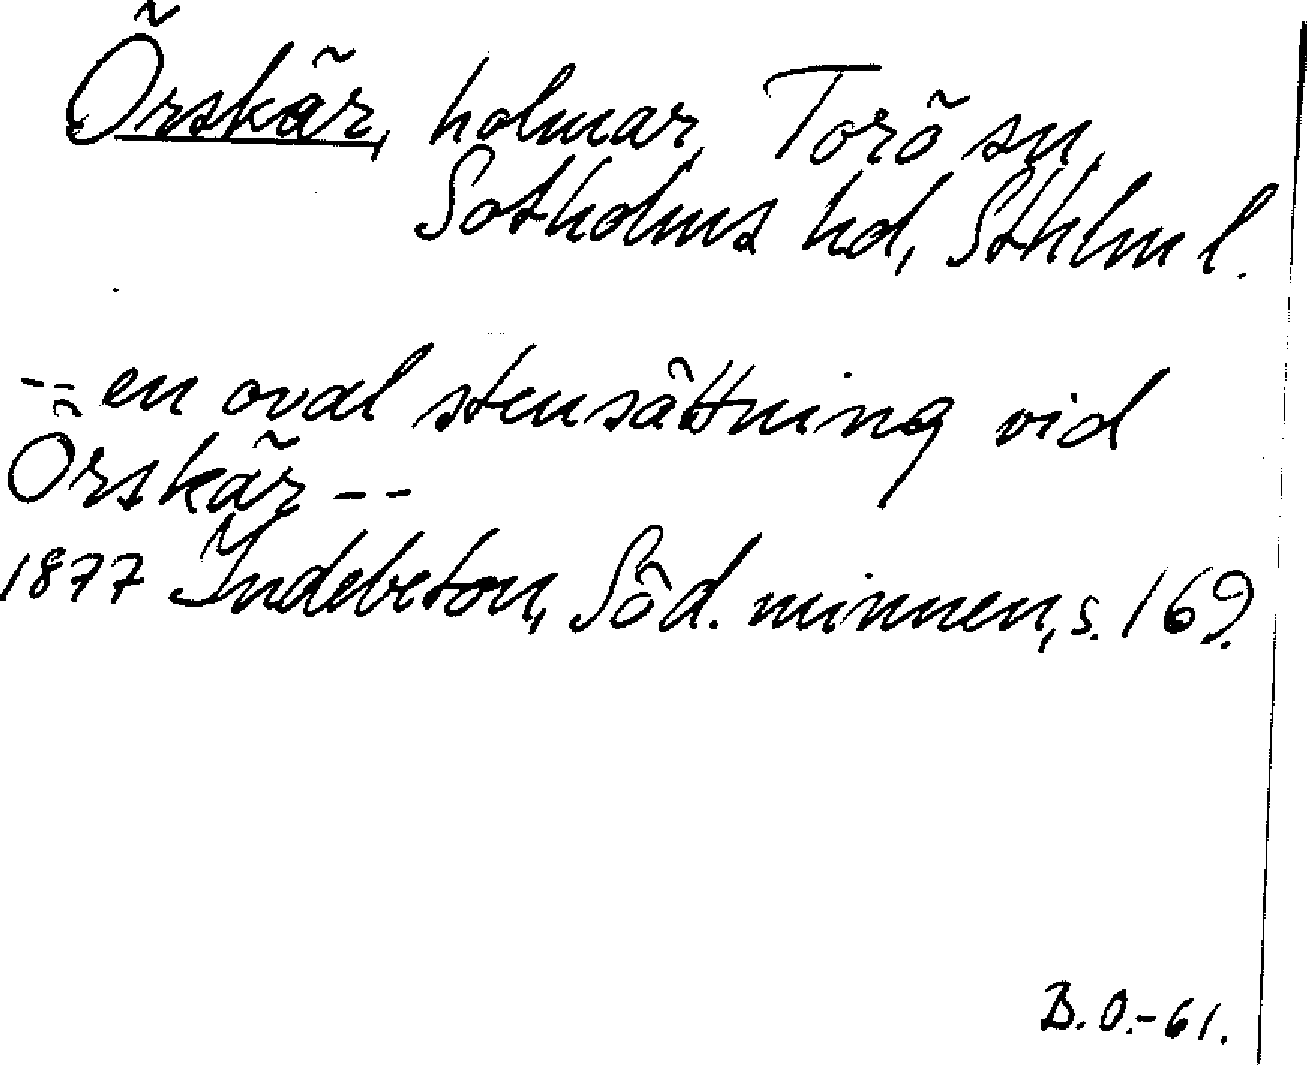 Örskär, holmar, Torö sn,
Sotholms hd, Sthlm l.
-- en oval stensättning vid
Örskär --
1877 Indebetou, Söd. minnen, s. 169.
B.O.-61.